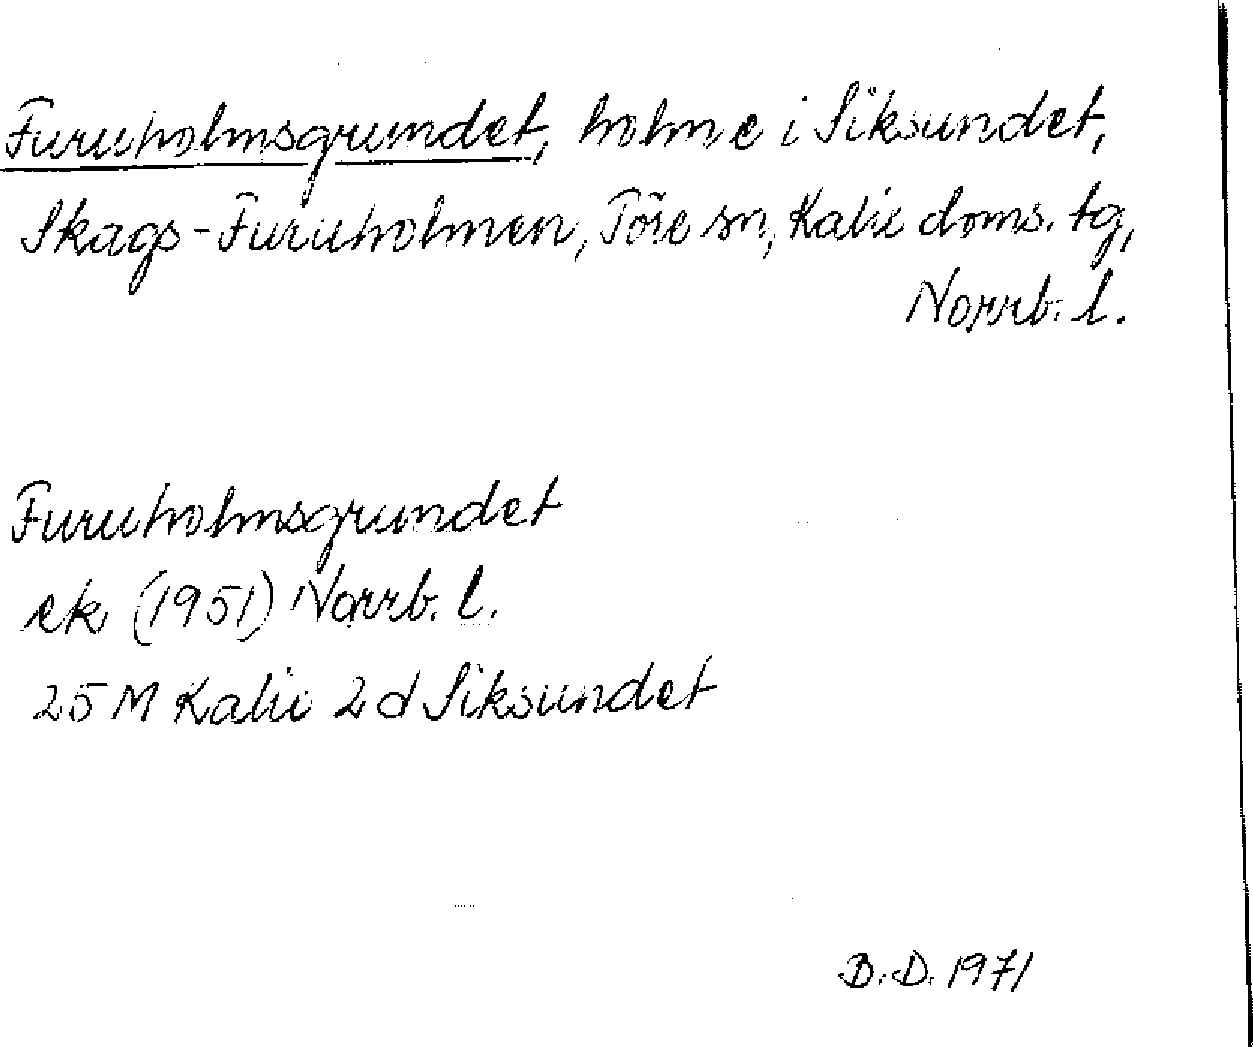 Furuholmsgrundet, holme i Siksundet,
Skags-Furuholmen, Töre sn, Kalix doms. tg,
Norrb. l.
Furuholmsgrundet
ek (1951) Norrb. l.
25 M Kalix 2d Siksundet
B.D. 1971